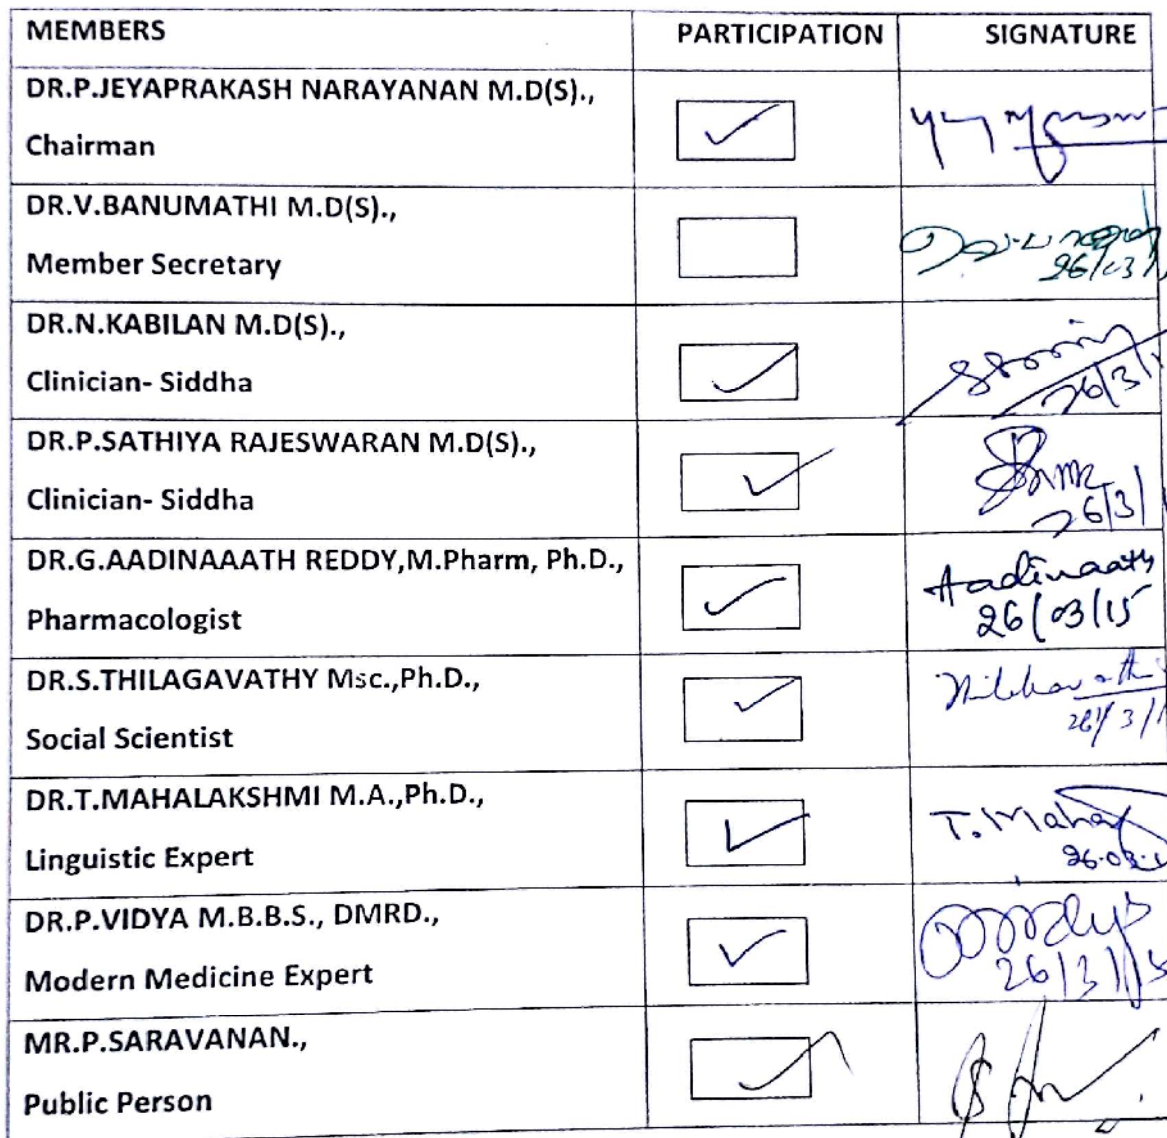 MEMBERS PARTICIPATION SIGNATURE
DR.P.JEYAPRAKASH NARAYANAN M.D(S).,
Chairman
DR.V.BANUMATHI M.D(S).,
Member Secretary
26/03/
DR.N.KABILAN M.D(S).,
Clinician- Siddha
26/3/
DR.P.SATHIYA RAJESWARAN M.D(S).,
Clinician- Siddha
26/3/
DR.G.AADINAAATH REDDY,M.Pharm, Ph.D.,
Aadinaath
Pharmacologist
26/03/15
DR.S.THILAGAVATHY Msc.,Ph.D.,
Social Scientist
DR.T.MAHALAKSHMI M.A.,Ph.D.,
T. Maha
Linguistic Expert
26.03.
DR.P.VIDYA M.B.B.S., DMRD.,
Modern Medicine Expert
26/3/15
MR.P.SARAVANAN.,
Public Person